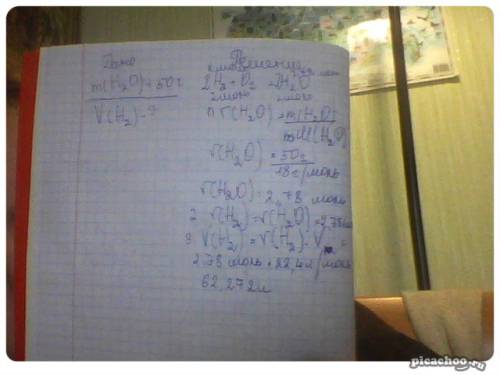 Дано
m(H₂O) = 50 г
V(H₂) - ?
Решение
2H₂ + O₂ = 2H₂O
2 моль 2 моль
ν(H₂O) = m(H₂O)
M(H₂O)
ν(H₂O) = 50 г
18 г/моль
ν(H₂O) = 2,78 моль
2 ν(H₂) = ν(H₂O) = 2,78
3 V(H₂) = ν(H₂) · V =
2,78 моль · 22,4 л/моль
62,272 л
picachoo.ru